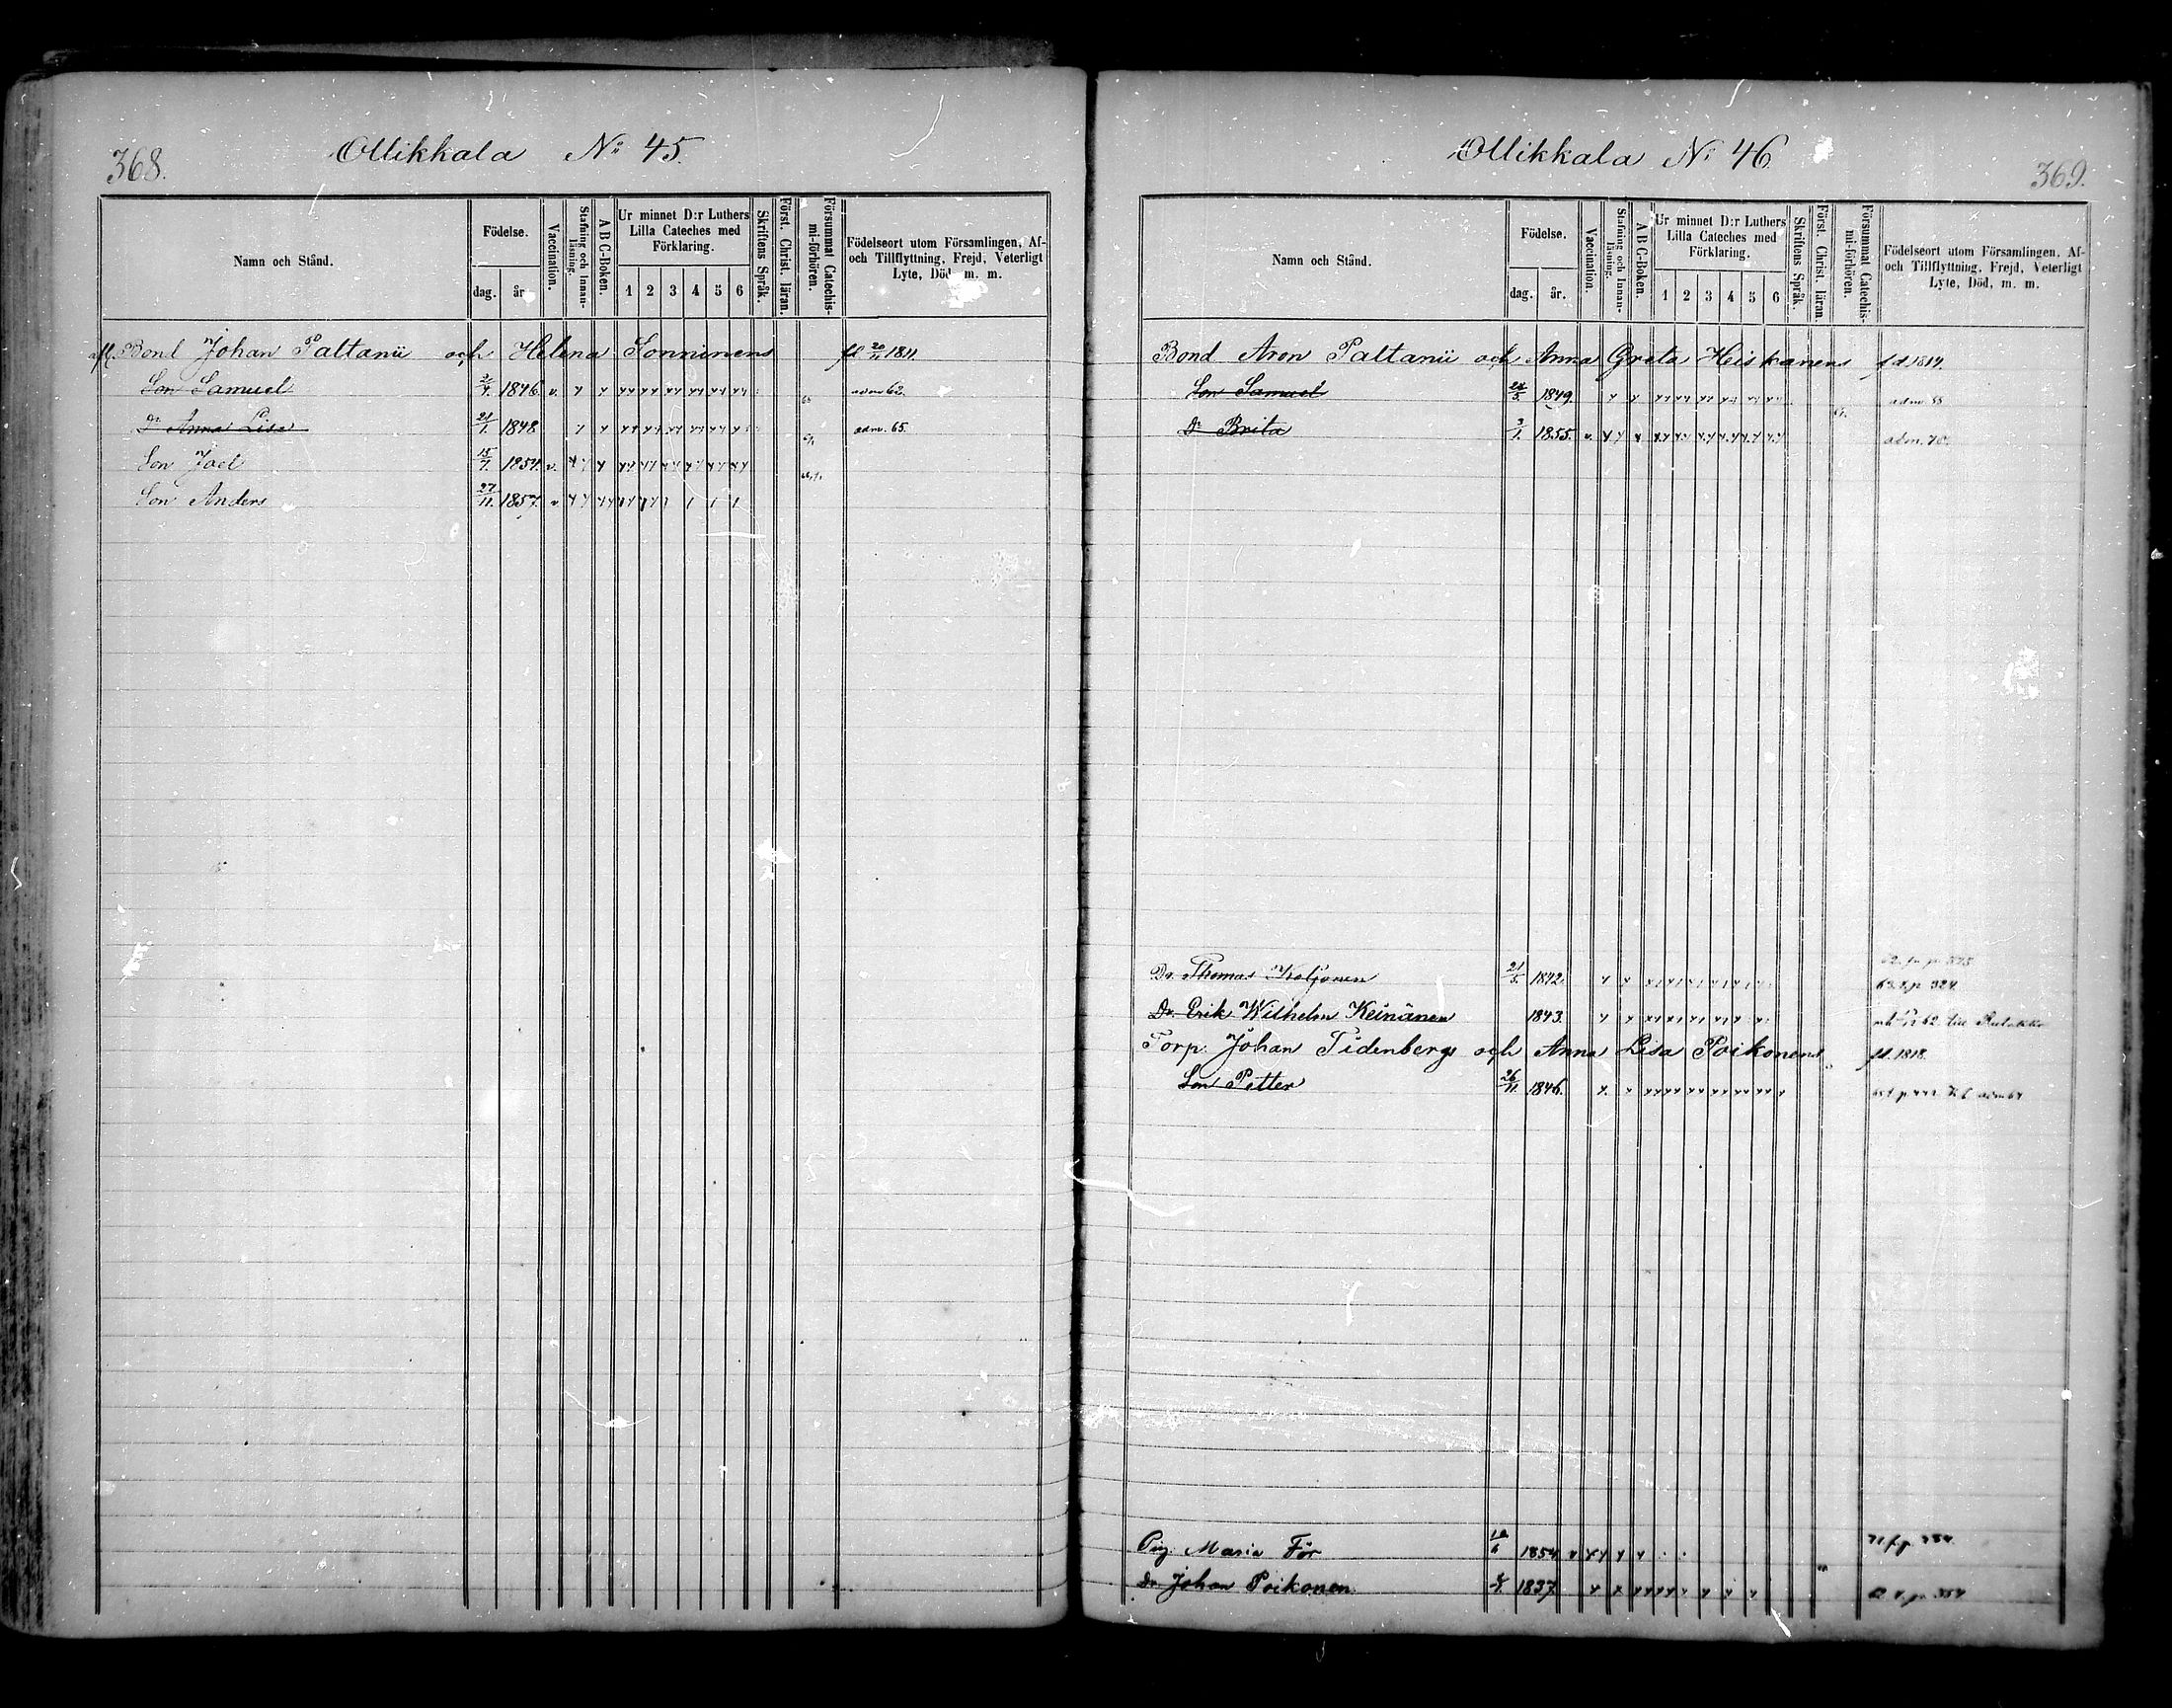 368.
Ollikkala No 45.
Namn och Stånd.
Födelse.
dag. år.
Vaccination.
Stafning och Innanläsning.
A B C-Boken.
Ur minnet D:r Luthers
Lilla Cateches med
Förklaring.
1 2 3 4 5 6
Skriftens Språk.
Först. Christ. läran.
Försummat Catechismi-förhören.
Födelseort utom Församlingen, Af-
och Tillflyttning, Frejd, Veterligt
Lyte, Död, m. m.
Bond Johan Paltanii och Helena Sonninens fd 20/11 1811.
Son Samuel 1846. v. adm 62.
Dr Anna Lisa 21/1. 1848 adm. 65.
Son Joel 15/7. 1854. v.
Son Anders 27/11. 1857. v
Ollikkala No 46
369.
Namn och Stånd.
Födelse.
dag. år.
Vaccination.
Stafning och Innanläsning.
A B C-Boken.
Ur minnet D:r Luthers
Lilla Cateches med
Förklaring.
1 2 3 4 5 6
Skriftens Språk.
Först. Christ. läran.
Försummat Catechismi-förhören.
Födelseort utom Församlingen, Af-
och Tillflyttning, Frejd, Veterligt
Lyte, Död, m. m.
Bond Aron Paltanii och Anna Greta Heiskanens fd. 1814.
Son Samuel 1849.
Dr Brita 3/1. 1855. v. adm. 70.
Dr. Thomas Koljonen 21/5. 1842.
Dr. Erik Wilhelm Keinänen 1843.
Torp. Johan Tidenberg och Anna Lisa Poikonens fd. 1818.
Son Petter 26/11. 1846.
Pig. Maria För 1854
Dr Johan Poikonen 1837.